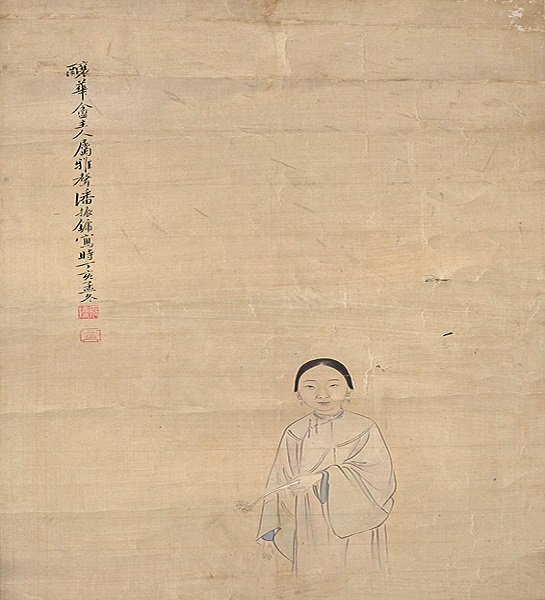 釀華盦主人屬雅聲潘振鏞寫時丁亥孟冬